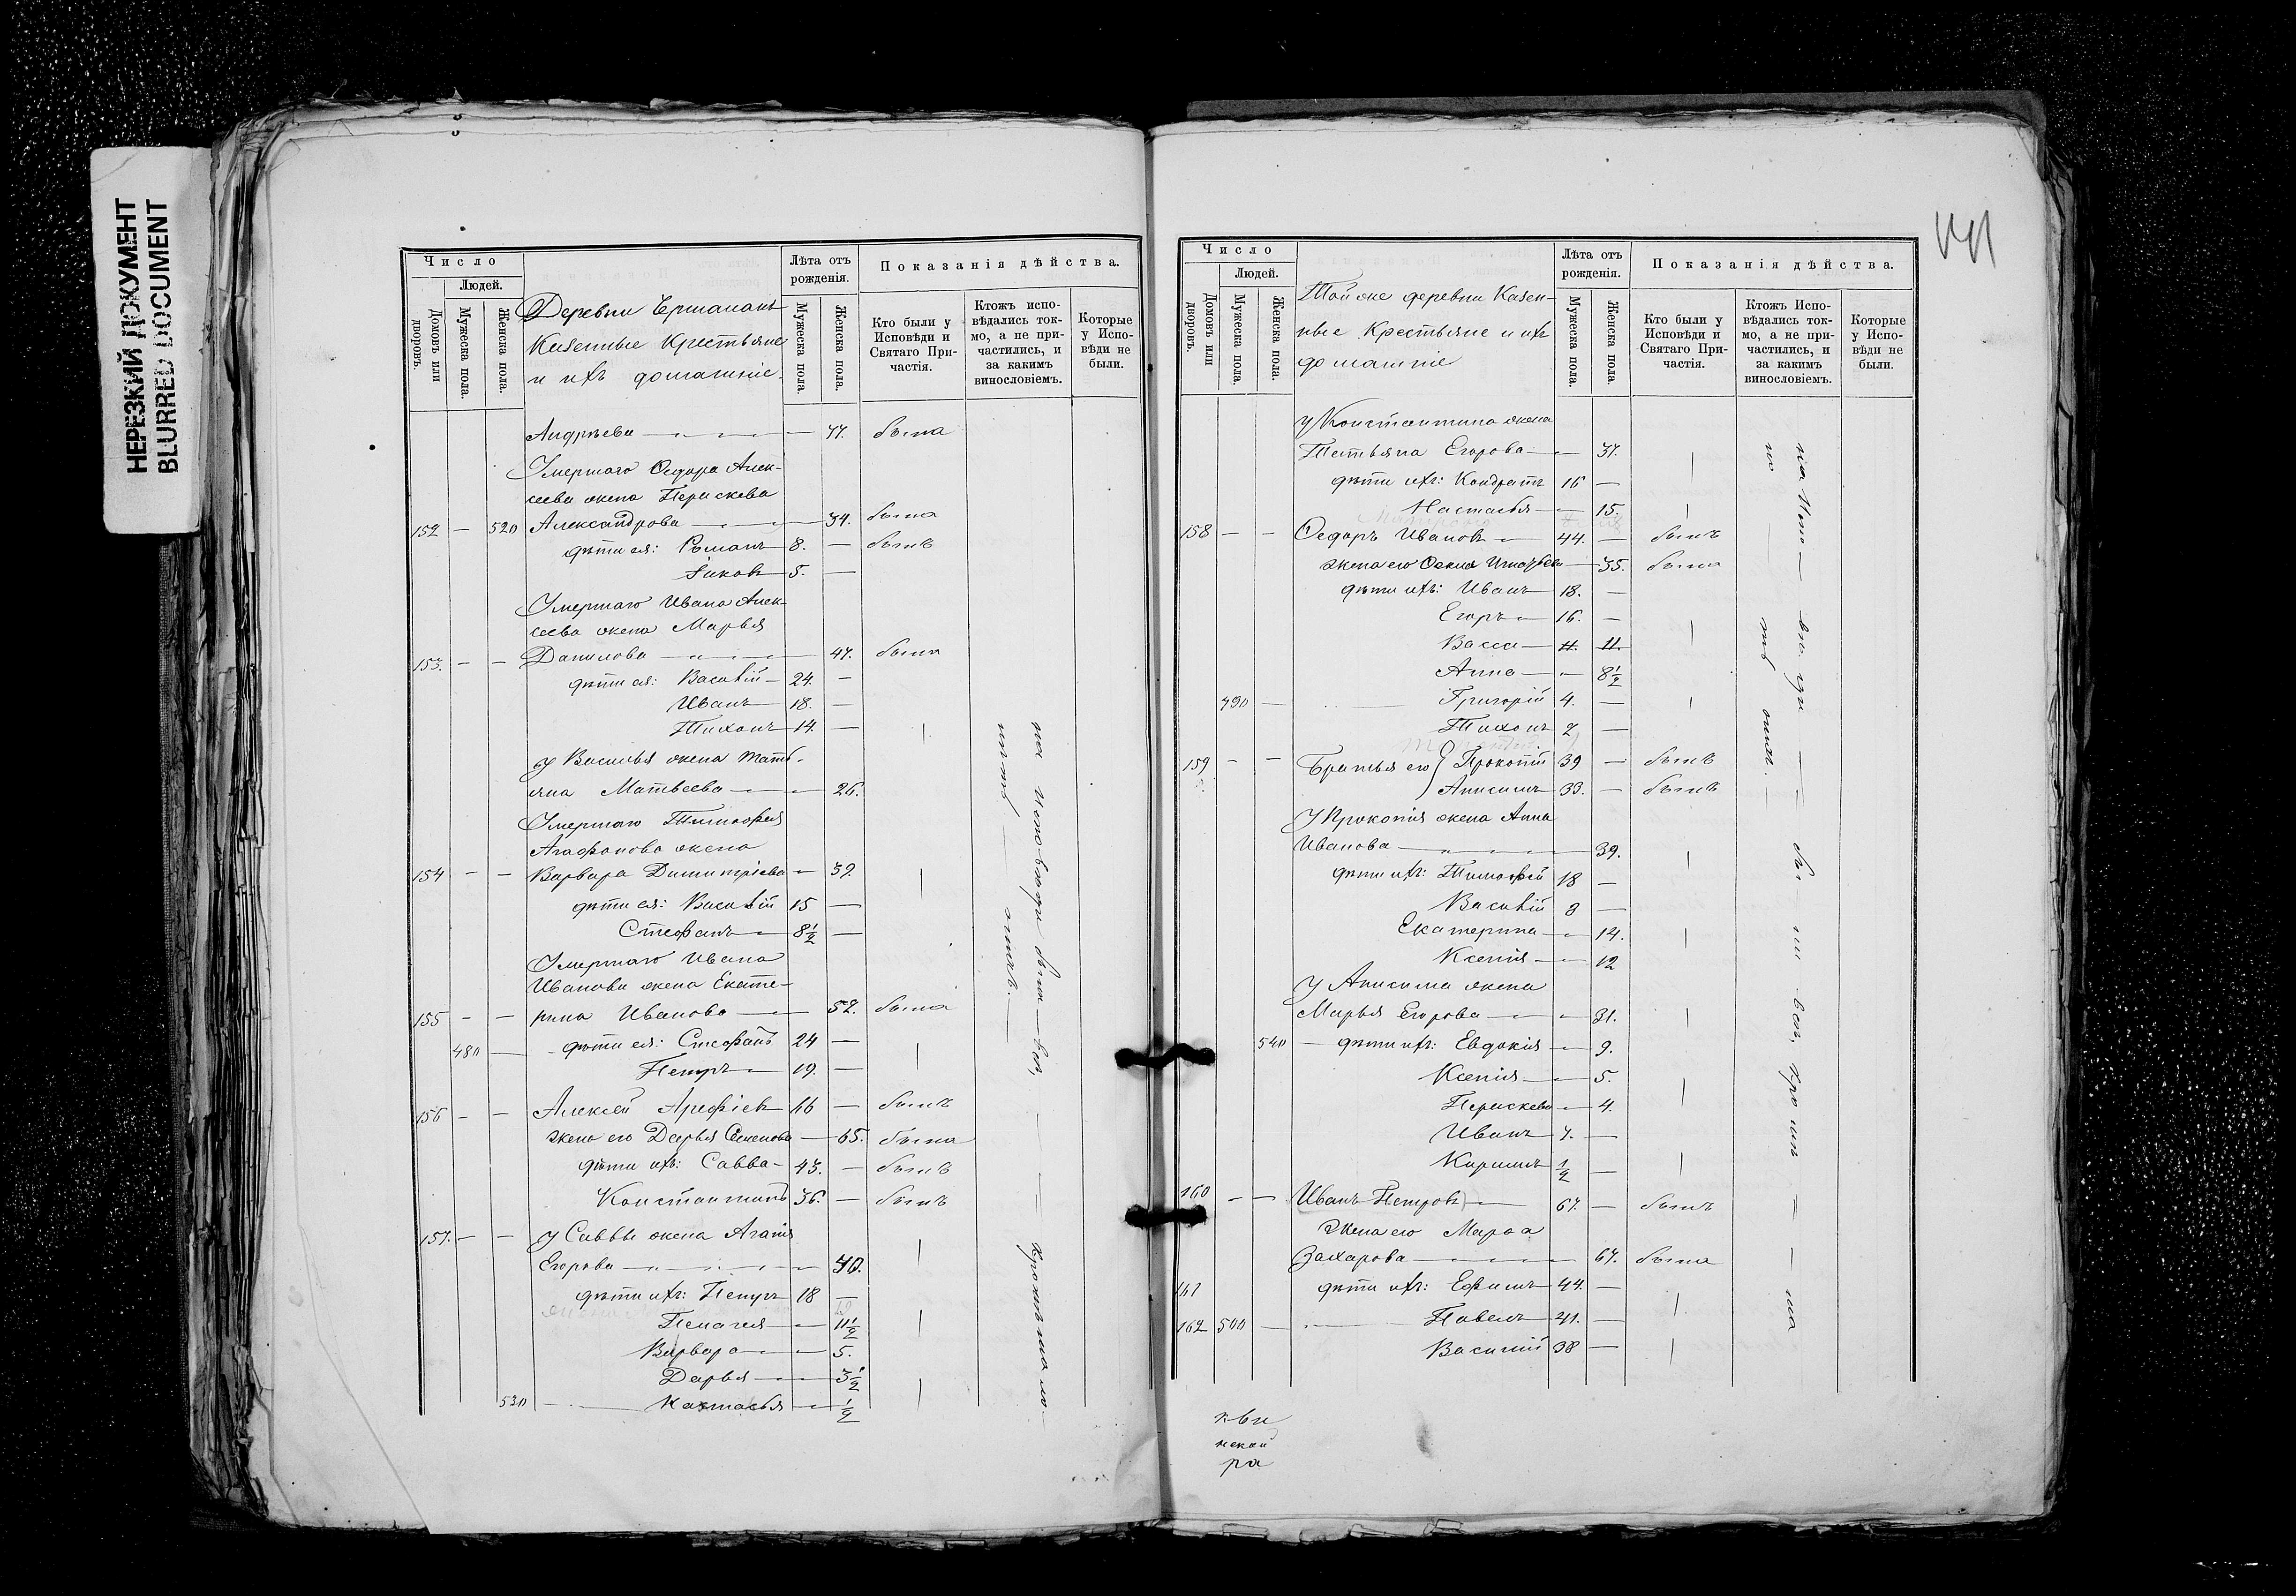 НЕРЕЗКИЙ ДОКУМЕНТ
BLURRED DOCUMENT
Число
Людей.
Домовъ или дворовъ.
Мужеска пола.
Женска пола.
Деревни
Казенные Крестьяне
и ихъ домашніе.
Лѣта отъ рожденія.
Мужеска пола.
Женска пола.
Показанія дѣйства.
Кто были у Исповѣди и Святаго Причастія.
Ктожъ исповѣдались токмо, а не причастились, и за какимъ винословіемъ.
Которые у Исповѣди не были.
Андреева — 77. была
Умершаго Ѳедора Алек-
сеева жена Параскева
152 — 520 Александрова — 34. была
дѣти ея: Романъ 8. — былъ
Яковъ 5. —
Умершаго Ивана Алек-
сеева жена Марья
153. — — Данилова — 47. была
дѣти ея: Василій 24. —
Иванъ 18. —
Тихонъ 14. —
у Василья жена Тать-
яна Матвеева — 26.
Умершаго Тимофея
Агафонова жена
154 — — Варвара Димитріева — 39.
дѣти ея: Василій 15 —
Стефанъ 8½ —
Умершаго Ивана
Иванова жена Екате-
155 — — рина Иванова — 52. была
480 — дѣти ея: Стефанъ 24 —
Петръ 19. —
156 — — Алексей Арефіевъ 66 — былъ
жена его Дарья Семенова — 65. была
дѣти ихъ: Савва 43. — былъ
Константинъ 36. — былъ
157. — — у Саввы жена Агапія
Егорова — 40.
дѣти ихъ: Петръ 18 —
Пелагея — 11½
Варвара — 5.
Дарья — 3½
530 — Настасья — ½
Число
Людей.
Домовъ или дворовъ.
Мужеска пола.
Женска пола.
Той же деревни Казен-
ные Крестьяне и ихъ
домашніе
Лѣта отъ рожденія.
Мужеска пола.
Женска пола.
Показанія дѣйства.
Кто были у Исповѣди и Святаго Причастія.
Ктожъ Исповѣдались токмо, а не причастились, и за какимъ винословіемъ.
Которые у Исповѣди не были.
у Константина жена
Татьяна Егорова — 37.
дѣти ихъ: Кондратъ 16 —
Настасья — 15.
158 — — Ѳедоръ Ивановъ 44. — былъ
жена его — 35. была
дѣти ихъ: Иванъ 18. —
Егоръ 16. —
Васса — 11.
Анна — 8½
490 — Григорій 4. —
Тихонъ 2 —
159 — — Братья его Прокопій 39 — былъ
Анисимъ 33. — былъ
У Прокопія жена Анна
Иванова — 39.
дѣти ихъ: Тимофей 18 —
Василій 8 —
Екатерина — 14.
Ксенія — 12
у Анисима жена
Марья Егорова — 31.
540 — дѣти ихъ: Евдокія — 9.
Ксенія — 5.
Параскева — 4.
Иванъ 7. —
Кариилъ ½ —
160 — — Иванъ Петровъ — 67. — былъ
жена его Марѳа
Захарова — 67. была
161 дѣти ихъ: Ефимъ 44. —
162 500 — Павелъ 41. —
Василій 38 —
ра